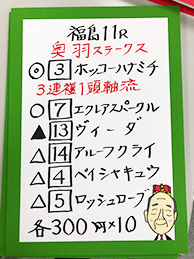 福島11R
奥羽ステークス
◎ 3 ホッコーハナミチ
3連複1頭軸流
○ 7 エクレアスパークル
▲ 13 ヴィーダ
△ 14 アルーフクライ
△ 4 ペイシャキュウ
△ 5 ロッシュローブ
各300円×10